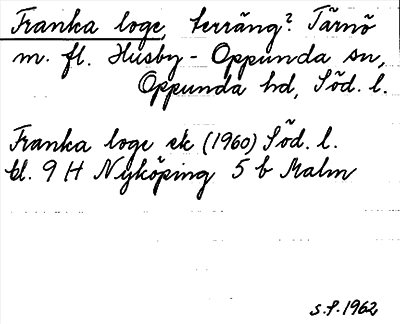 Franka loge, terräng? Tärnö
m. fl. Husby-Oppunda sn,
Oppunda hd, Söd. l.
Franka loge ek (1960) Söd. l.
bl. 9 H Nyköping 5 b Malm
s.f. 1962